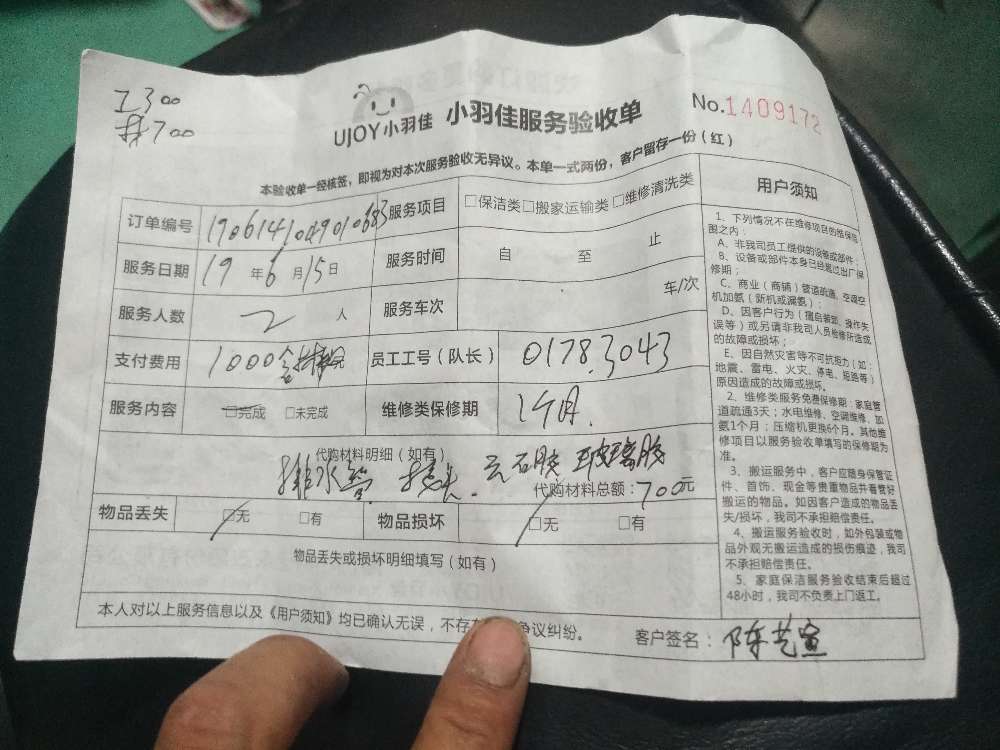 工300
材700
UJOY小羽佳 小羽佳服务验收单
No.1409172
本验收单一经核签，即视为对本次服务验收无异议。本单一式两份，客户留存一份（红）
订单编号 1906141049010683 服务项目 □保洁类□搬家运输类□维修清洗类
服务日期 19年6月15日 服务时间 自 至 止
服务人数 2人 服务车次 车/次
支付费用 1000含材料 员工工号（队长） 0178.3043
服务内容 □完成 □未完成 维修类保修期 1个月.
代购材料明细（如有）
排水管 接头 云石胶 玻璃胶
代购材料总额：700元
物品丢失 □无 □有 物品损坏 □无 □有
物品丢失或损坏明细填写（如有）
本人对以上服务信息以及《用户须知》均已确认无误，不存在 争议纠纷。
客户签名：陈艺宣
用户须知
1、下列情况不在维修项目的维保范
围之内：
A、非我司员工提供的设备或部件；
B、设备或部件本身已经超过出厂保
修期；
C、商业（商铺）管道疏通、空调空
机加氨（新机或漏氨）；
D、因客户行为（擅自装卸、操作失
误等）或另请非我司人员检修所造成
的故障或损坏；
E、因自然灾害等不可抗拒力（如：
地震、雷电、火灾、停电、短路等）
原因造成的故障或损坏。
2、维修类服务免费保修期：家庭管
道疏通3天；水电维修、空调维修、加
氨1个月；压缩机更换6个月。其他维
修项目以服务验收单填写的保修期为
准。
3、搬运服务中，客户应随身保管证
件、首饰、现金等贵重物品并看管好
搬运的物品。如因客户造成的物品丢
失/损坏，我司不承担赔偿责任。
4、搬运服务验收时，如外包装或物
品外观无搬运造成的损伤痕迹，我司
不承担赔偿责任。
5、家庭保洁服务验收结束后超过
48小时，我司不负责上门返工。